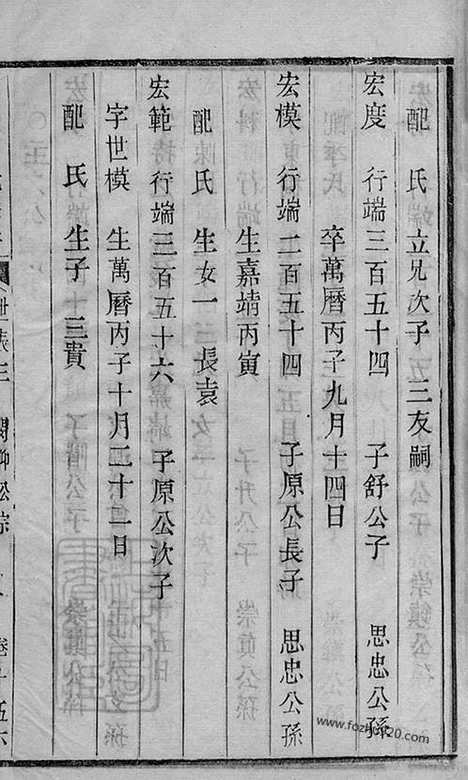 配 氏 立兄次子 三友嗣
宏度 行端三百五十四 子舒公子 思忠公孫
卒萬曆丙子九月十四日
宏模 行端二百五十四 子原公長子 思忠公孫
生嘉靖丙寅
配 氏 生女一 長袁
宏範 行端三百五十六 子原公次子
字世模 生萬曆丙子十月二十一日
配 氏 生子 三貴
世表三
www.fozhu920.com